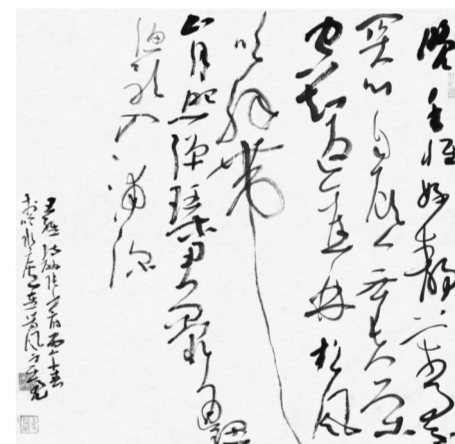 晚年惟好静万事不
関心自顾无长策
空知返旧林松风
吹解带
山月照弹琴君问穷通理
渔歌入浦深
王维诗酬张少府